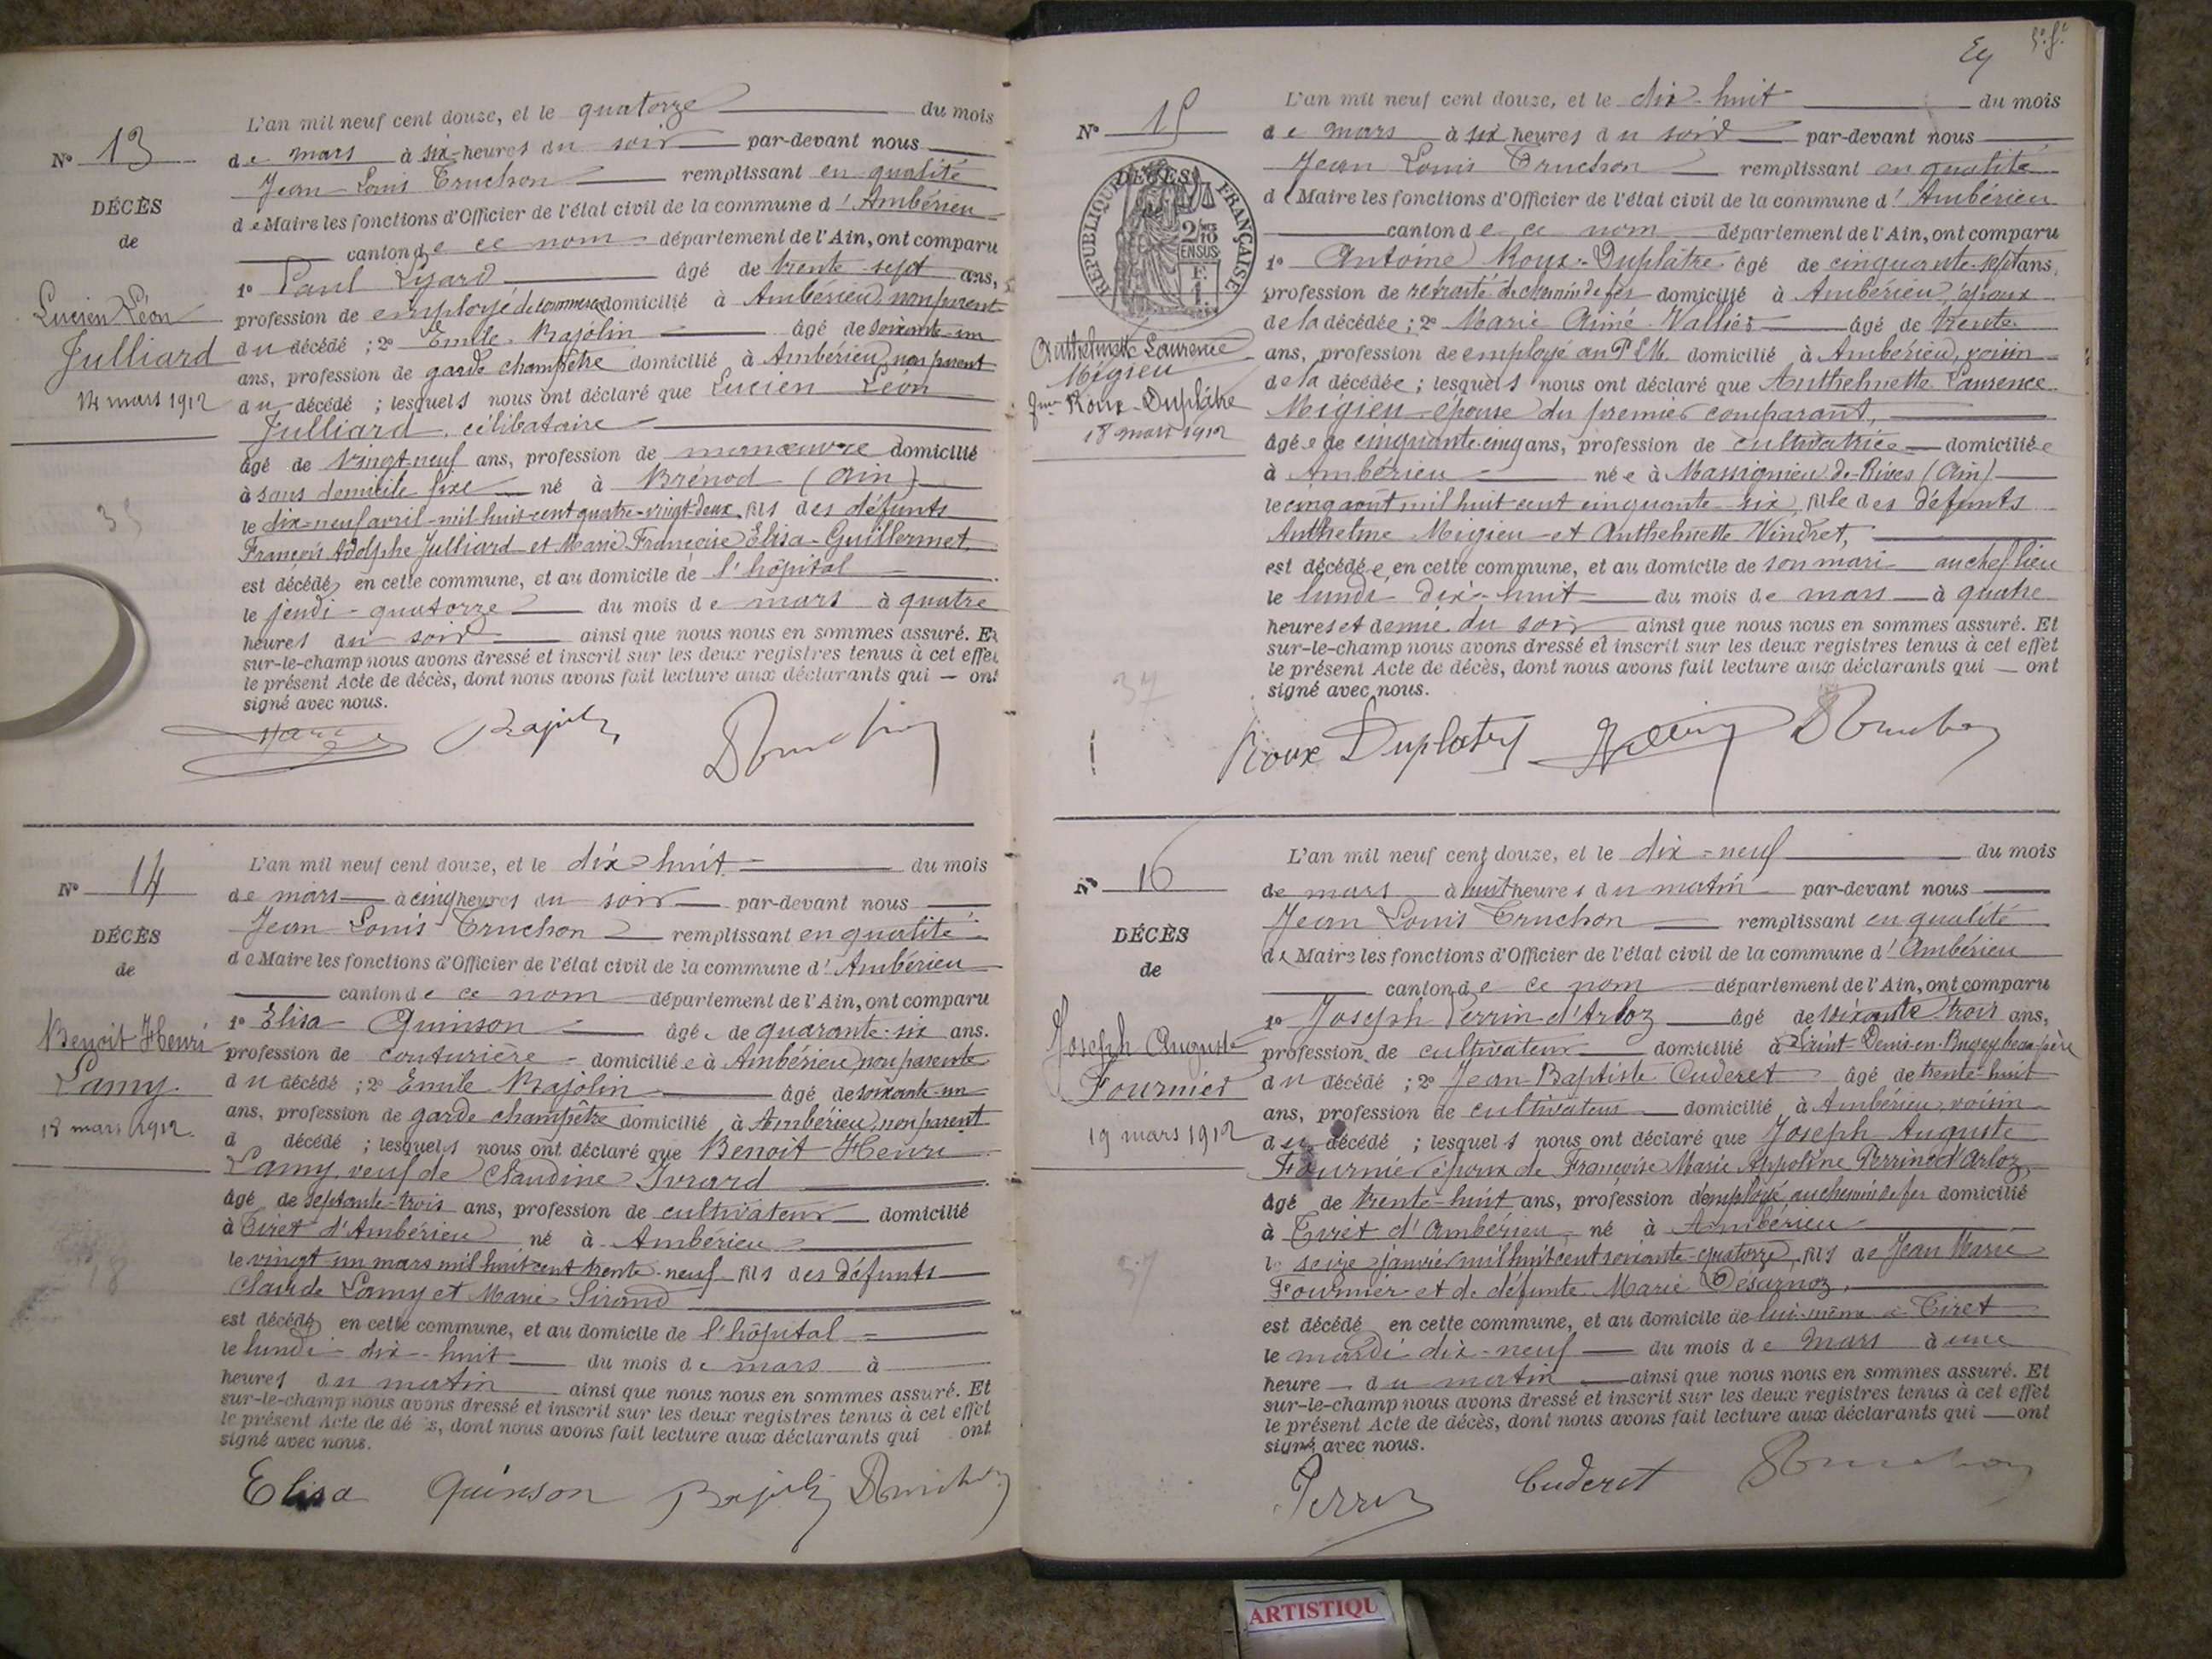 L'an mil neuf cent douze, et le quatorze du mois
N° 13
de mars à six heures du soir par-devant nous
Jean Louis Truchon remplissant en qualité
DÉCÈS
de Maire les fonctions d'Officier de l'état civil de la commune d'Ambérieu
de
canton de ce nom département de l'Ain, ont comparu
1° Paul âgé de trente sept ans,
Lucien Léon
profession de employé de commerce domicilié à Ambérieu, non parent
Julliard
du décédé ; 2° Emile Rajolin âgé de soixante-un
ans, profession de garde champêtre domicilié à Ambérieu non parent
14 mars 1912
du décédé ; lesquels nous ont déclaré que Lucien Léon
Julliard, célibataire
âgé de vingt-neuf ans, profession de manœuvre domicilié
à sans domicile fixe né à Brénod (Ain)
le dix-neuf avril mil huit cent quatre-vingt-deux, fils des défunts
François Adolphe Julliard et Marie Françoise Elisa Guillermet,
est décédé en cette commune, et au domicile de l'hôpital
le jeudi quatorze du mois de mars à quatre
heures du soir ainsi que nous nous en sommes assuré. Et
sur-le-champ nous avons dressé et inscrit sur les deux registres tenus à cet effet
le présent Acte de décès, dont nous avons fait lecture aux déclarants qui — ont
signé avec nous.
Rajolin Truchon
L'an mil neuf cent douze, et le dix huit du mois
N° 14
de mars à cinq heures du soir par-devant nous
Jean Louis Truchon remplissant en qualité
DÉCÈS
de Maire les fonctions d'Officier de l'état civil de la commune d'Ambérieu
de
canton de ce nom département de l'Ain, ont comparu
1° Elisa Quinson âgée de quarante-six ans.
Benoit Henri
profession de couturière domiciliée à Ambérieu non parente
Lamy
du décédé ; 2° Emile Rajolin âgé de soixante-un
ans, profession de garde champêtre domicilié à Ambérieu, non parent
18 mars 1912.
d décédé ; lesquels nous ont déclaré que Benoit Henri
Lamy, veuf de Claudine Ivrard
âgé de septante-trois ans, profession de cultivateur domicilié
à Tiret d'Ambérieu né à Ambérieu
le vingt un mars mil huit cent trente-neuf fils des défunts
Claude Lamy et Marie Sirand
est décédé en cette commune, et au domicile de l'hôpital
le lundi dix-huit du mois de mars à
heures du matin ainsi que nous nous en sommes assuré. Et
sur-le-champ nous avons dressé et inscrit sur les deux registres tenus à cet effet
le présent Acte de décès, dont nous avons fait lecture aux déclarants qui ont
signé avec nous.
Elisa Quinson Rajolin Truchon
L'an mil neuf cent douze, et le dix-huit du mois
N° 15
de mars à six heures du soir par-devant nous
Jean Louis Truchon remplissant en qualité
DÉCÈS
de
RÉPUBLIQUE FRANÇAISE
2/10 EN SUS
de Maire les fonctions d'Officier de l'état civil de la commune d'Ambérieu
canton de ce nom département de l'Ain, ont comparu
1° Antoine Roux-Duplâtre âgé de cinquante-sept ans,
profession de retraité de chemin de fer domicilié à Ambérieu, époux
de la décédée ; 2° Marie Aimé Vallier âgé de trente
Anthelmette Laurence
ans, profession de employé au P.L.M. domicilié à Ambérieu, voisin
Migieu
de la décédée ; lesquels nous ont déclaré que Anthelmette Laurence
fme Roux-Duplâtre
Migieu épouse du premier comparant,
18 mars 1912
âgée de cinquante-cinq ans, profession de cultivatrice domiciliée
à Ambérieu née à Massignieu-de-Rives (Ain)
le cinq août mil huit cent cinquante-six, fille des défunts
Anthelme Migieu et Anthelmette Vindret,
est décédée en cette commune, et au domicile de son mari au chef-lieu
le lundi dix-huit du mois de mars à quatre
heures et demie du soir ainsi que nous nous en sommes assuré. Et
sur-le-champ nous avons dressé et inscrit sur les deux registres tenus à cet effet
le présent Acte de décès, dont nous avons fait lecture aux déclarants qui — ont
signé avec nous.
37
Roux Duplatre Truchon
L'an mil neuf cent douze, et le dix-neuf du mois
N° 16
de mars à huit heures du matin par-devant nous
Jean Louis Truchon remplissant en qualité
DÉCÈS
de Maire les fonctions d'Officier de l'état civil de la commune d'Ambérieu
de
canton de ce nom département de l'Ain, ont comparu
1° Joseph Perrin-d'Arloz âgé de soixante trois ans,
Joseph Auguste
profession de cultivateur domicilié à Saint-Denis-en-Bugey beau-père
Fournier
du décédé ; 2° Jean-Baptiste Cuderet âgé de trente-huit
ans, profession de cultivateur domicilié à Ambérieu, voisin
19 mars 1912
du décédé ; lesquels nous ont déclaré que Joseph Auguste
Fournier époux de Françoise Marie Appoline Perrin d'Arloz,
âgé de trente-huit ans, profession d'employé au chemin de fer domicilié
à Tiret d'Ambérieu né à Ambérieu
le seize janvier mil huit cent soixante-quatorze, fils de Jean Marie
Fournier et de défunte Marie Désarnoz,
est décédé en cette commune, et au domicile de lui-même à Tiret
le mardi dix-neuf du mois de mars à une
heure du matin ainsi que nous nous en sommes assuré. Et
sur-le-champ nous avons dressé et inscrit sur les deux registres tenus à cet effet
le présent Acte de décès, dont nous avons fait lecture aux déclarants qui — ont
signé avec nous.
Perrin Cuderet Truchon
ARTISTIQU